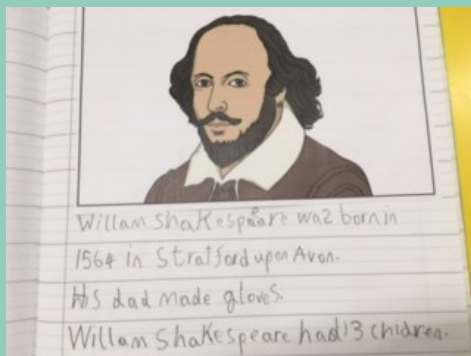 Willam Shakespeare waz born in
1564 in Stratford upon Avon.
His dad made gloves.
Willam Shakespeare had 3 chidren.